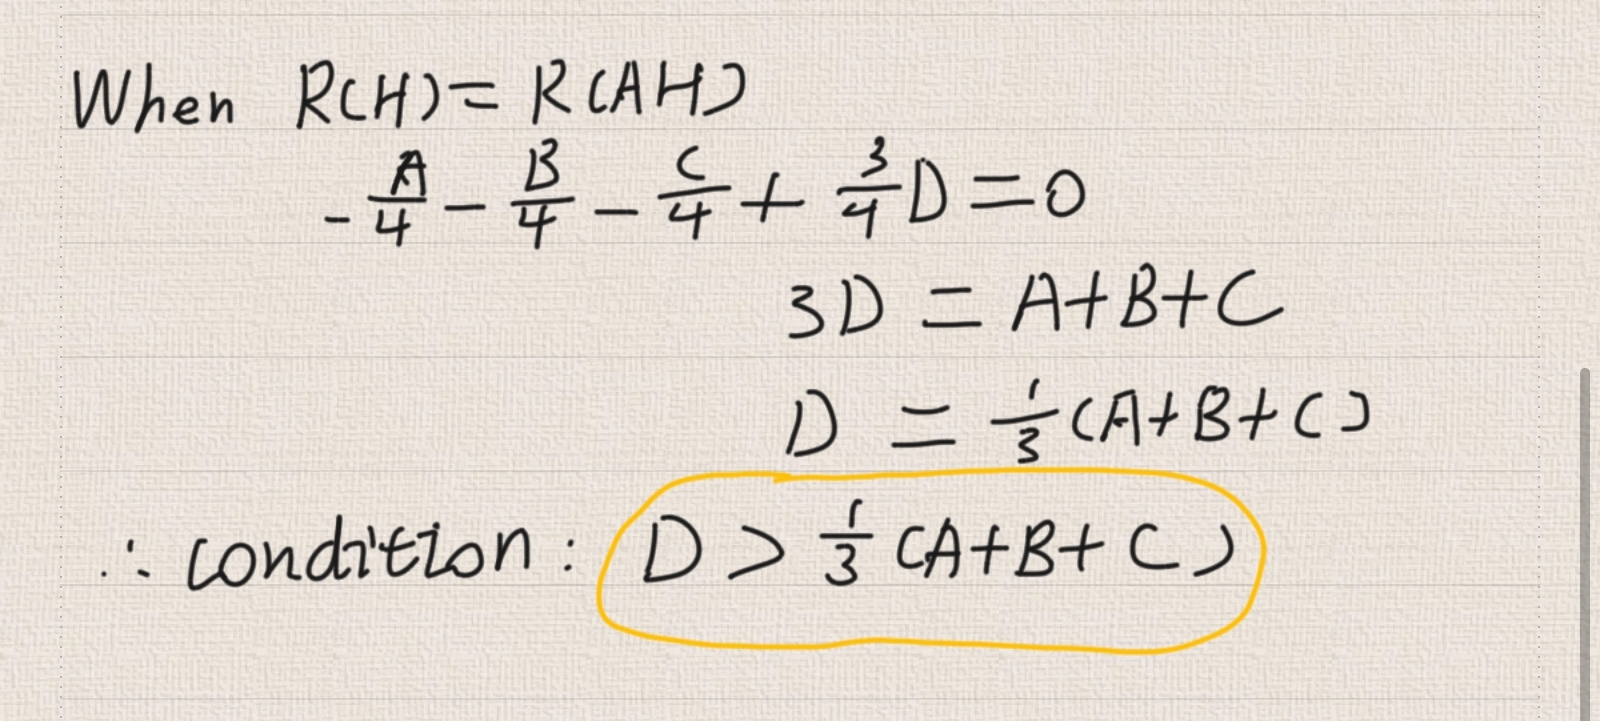 When R(H) = R(AH)
- A/4 - B/4 - C/4 + 3/4 D = 0
3D = A+B+C
D = 1/3 (A+B+C)
∴ condition : D > 1/3 (A+B+C)